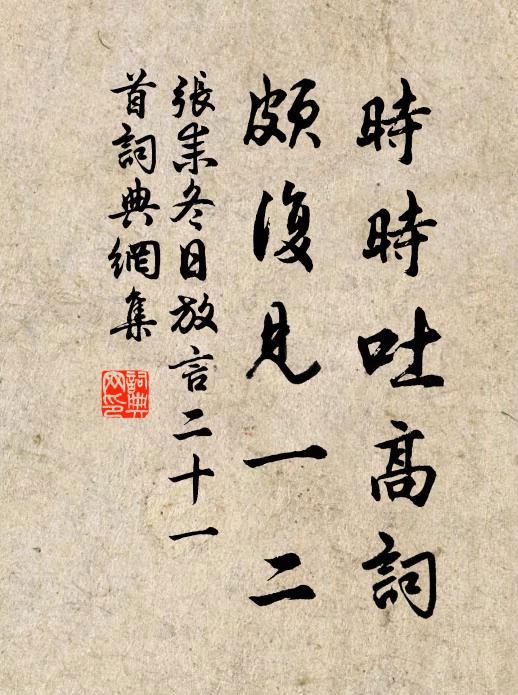 時時吐高詞
頗復見一二
張耒冬日放言二十一
首詞典網集
詞典
网印